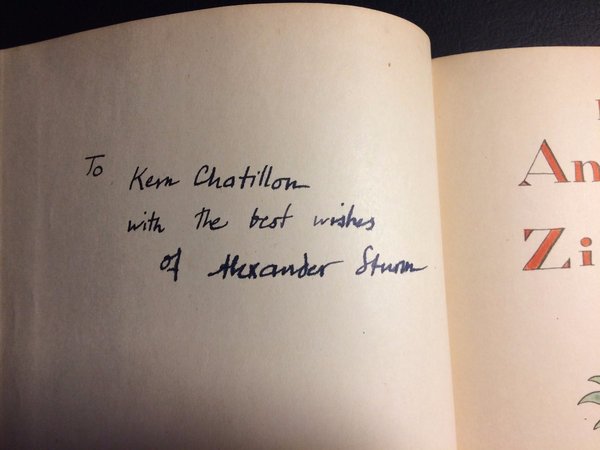 To Kem Chatillon
with the best wishes
of Alexander Sturm
An
Zi